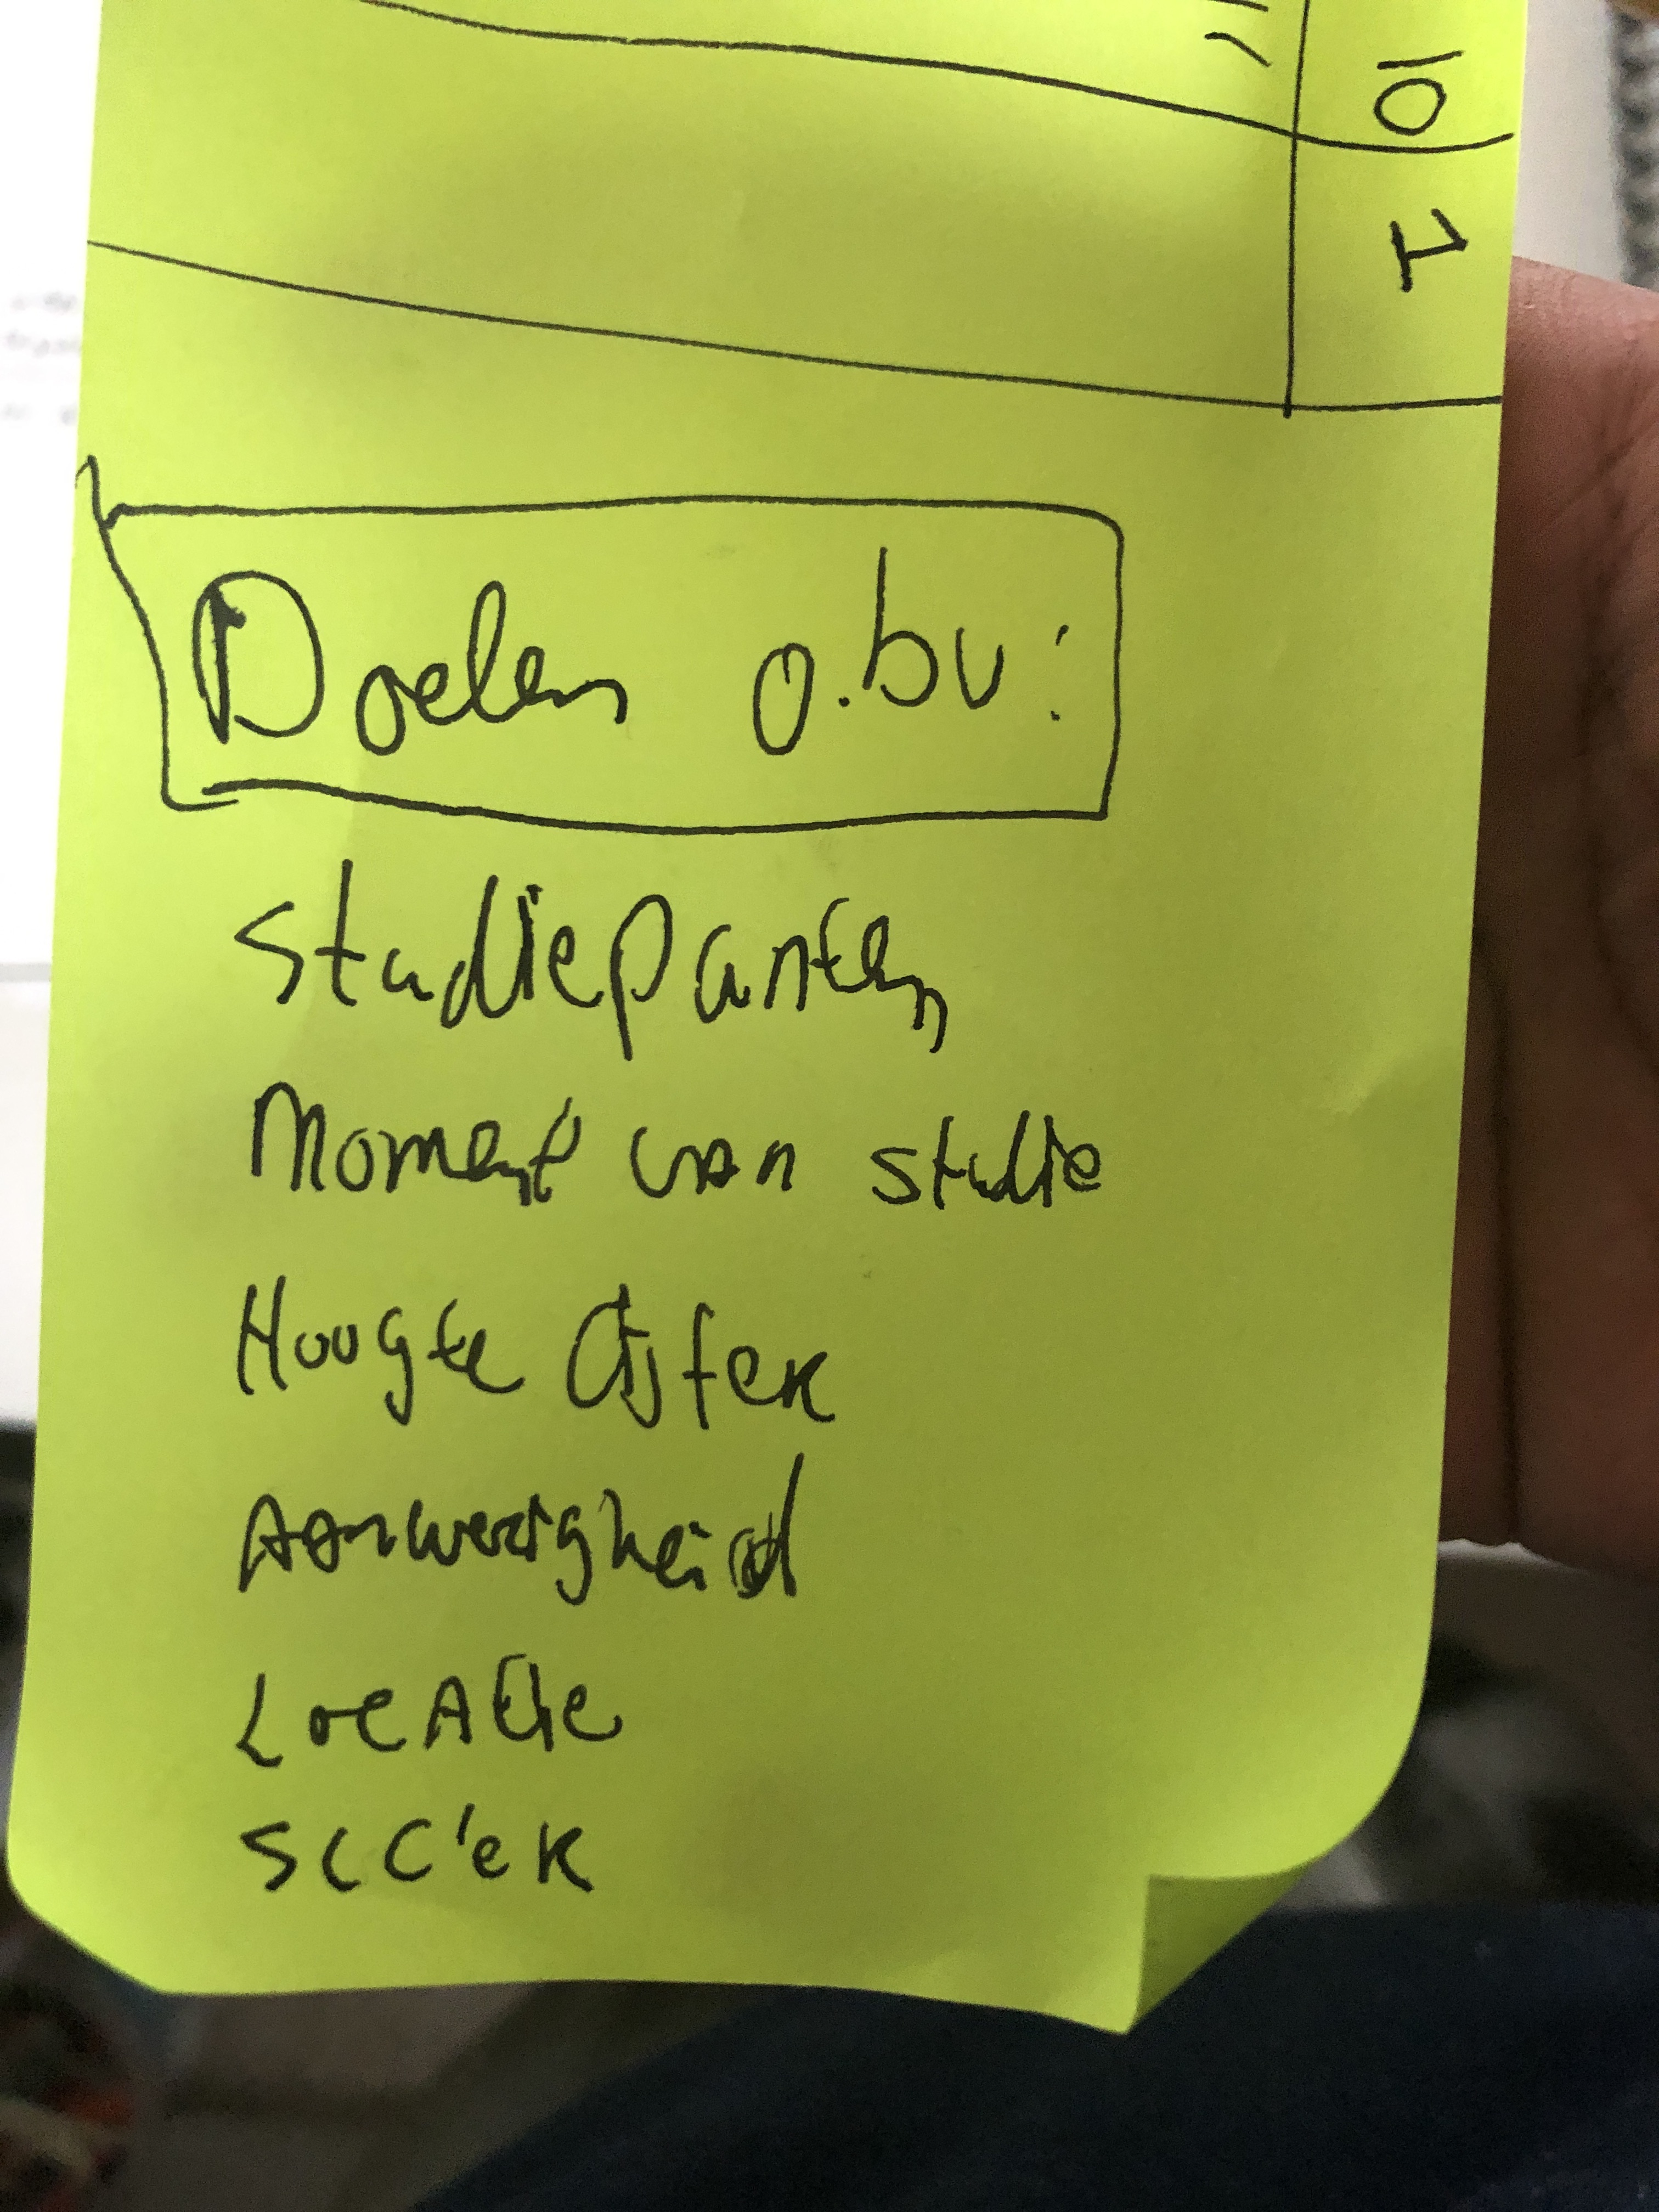 10
1
Doelen o.bv:
Studiepunten
Moment van studie
Hoogte Cijfer
Aanwezigheid
Locatie
SLC'er